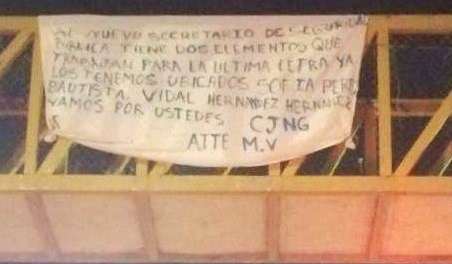 AL NUEVO SECRETARIO DE SEGURIDAD
PUBLICA TIENE DOS ELEMENTOS QUE
TRABAJAN PARA LA ULTIMA LETRA YA
LOS TENEMOS UBICADOS
BAUTISTA. VIDAL HERNANDEZ HERNANDEZ
VAMOS POR USTEDES CJNG
ATTE M.V